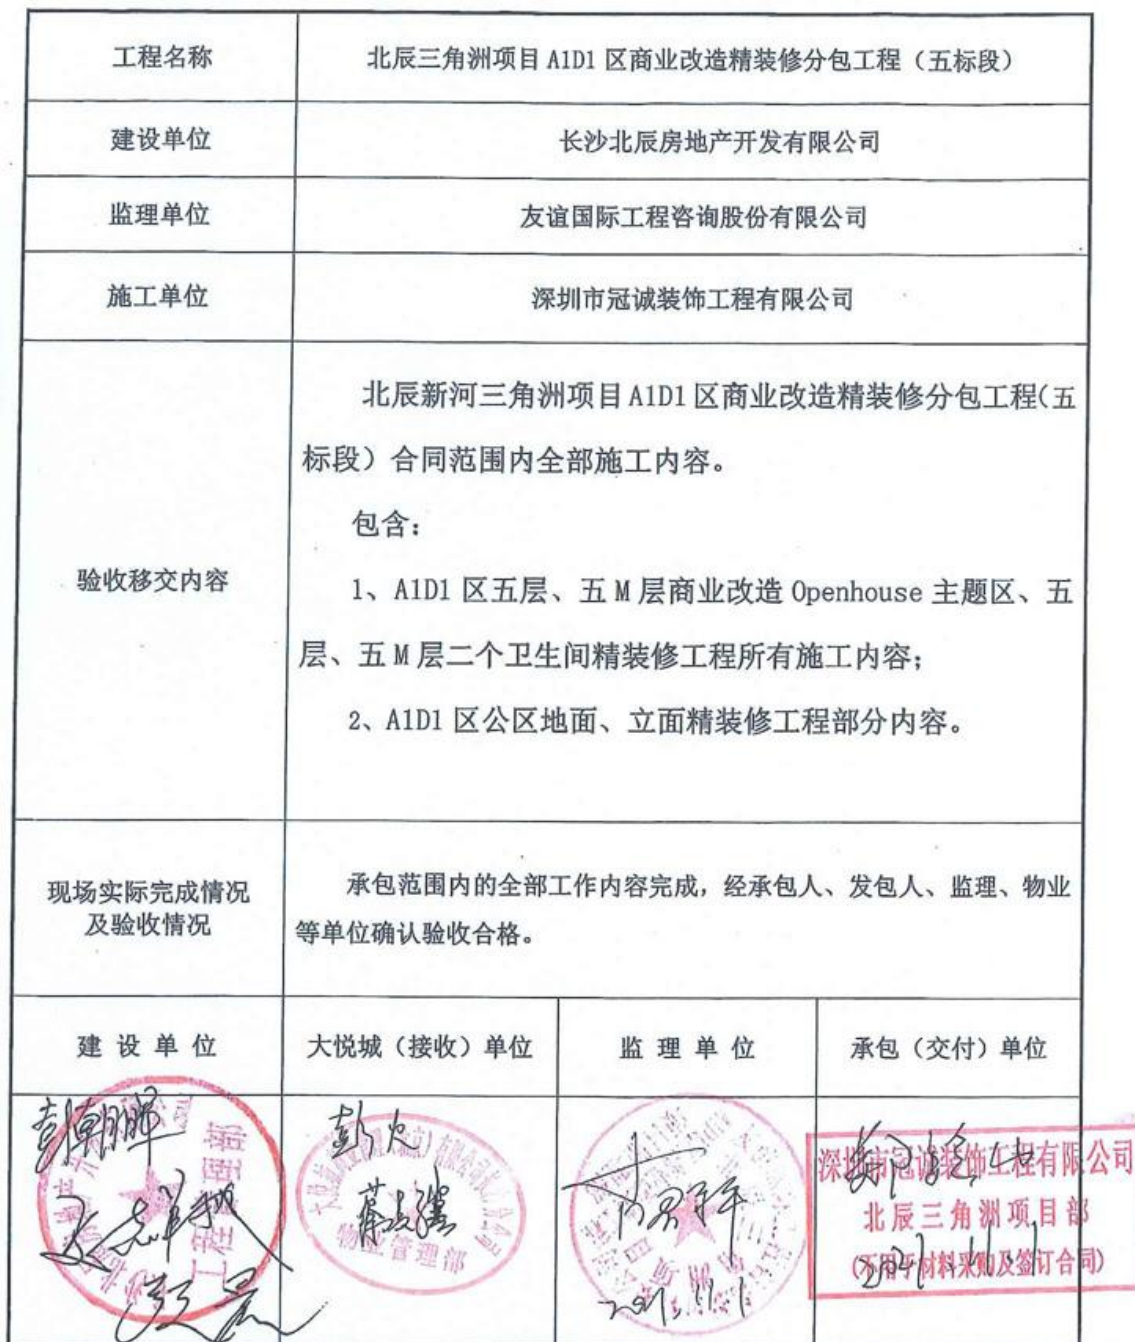 工程名称
北辰三角洲项目 A1D1 区商业改造精装修分包工程（五标段）
建设单位
长沙北辰房地产开发有限公司
监理单位
友谊国际工程咨询股份有限公司
施工单位
深圳市冠诚装饰工程有限公司
验收移交内容
北辰新河三角洲项目 A1D1 区商业改造精装修分包工程(五
标段）合同范围内全部施工内容。
包含：
1、A1D1 区五层、五 M 层商业改造 Openhouse 主题区、五
层、五 M 层二个卫生间精装修工程所有施工内容；
2、A1D1 区公区地面、立面精装修工程部分内容。
现场实际完成情况
及验收情况
承包范围内的全部工作内容完成，经承包人、发包人、监理、物业
等单位确认验收合格。
建 设 单 位
大悦城（接收）单位
监 理 单 位
承包（交付）单位
工程管理部
物业管理部
深圳市冠诚装饰工程有限公司
北辰三角洲项目部
(不用于材料采购及签订合同)
2021.11.1
2021.11.1